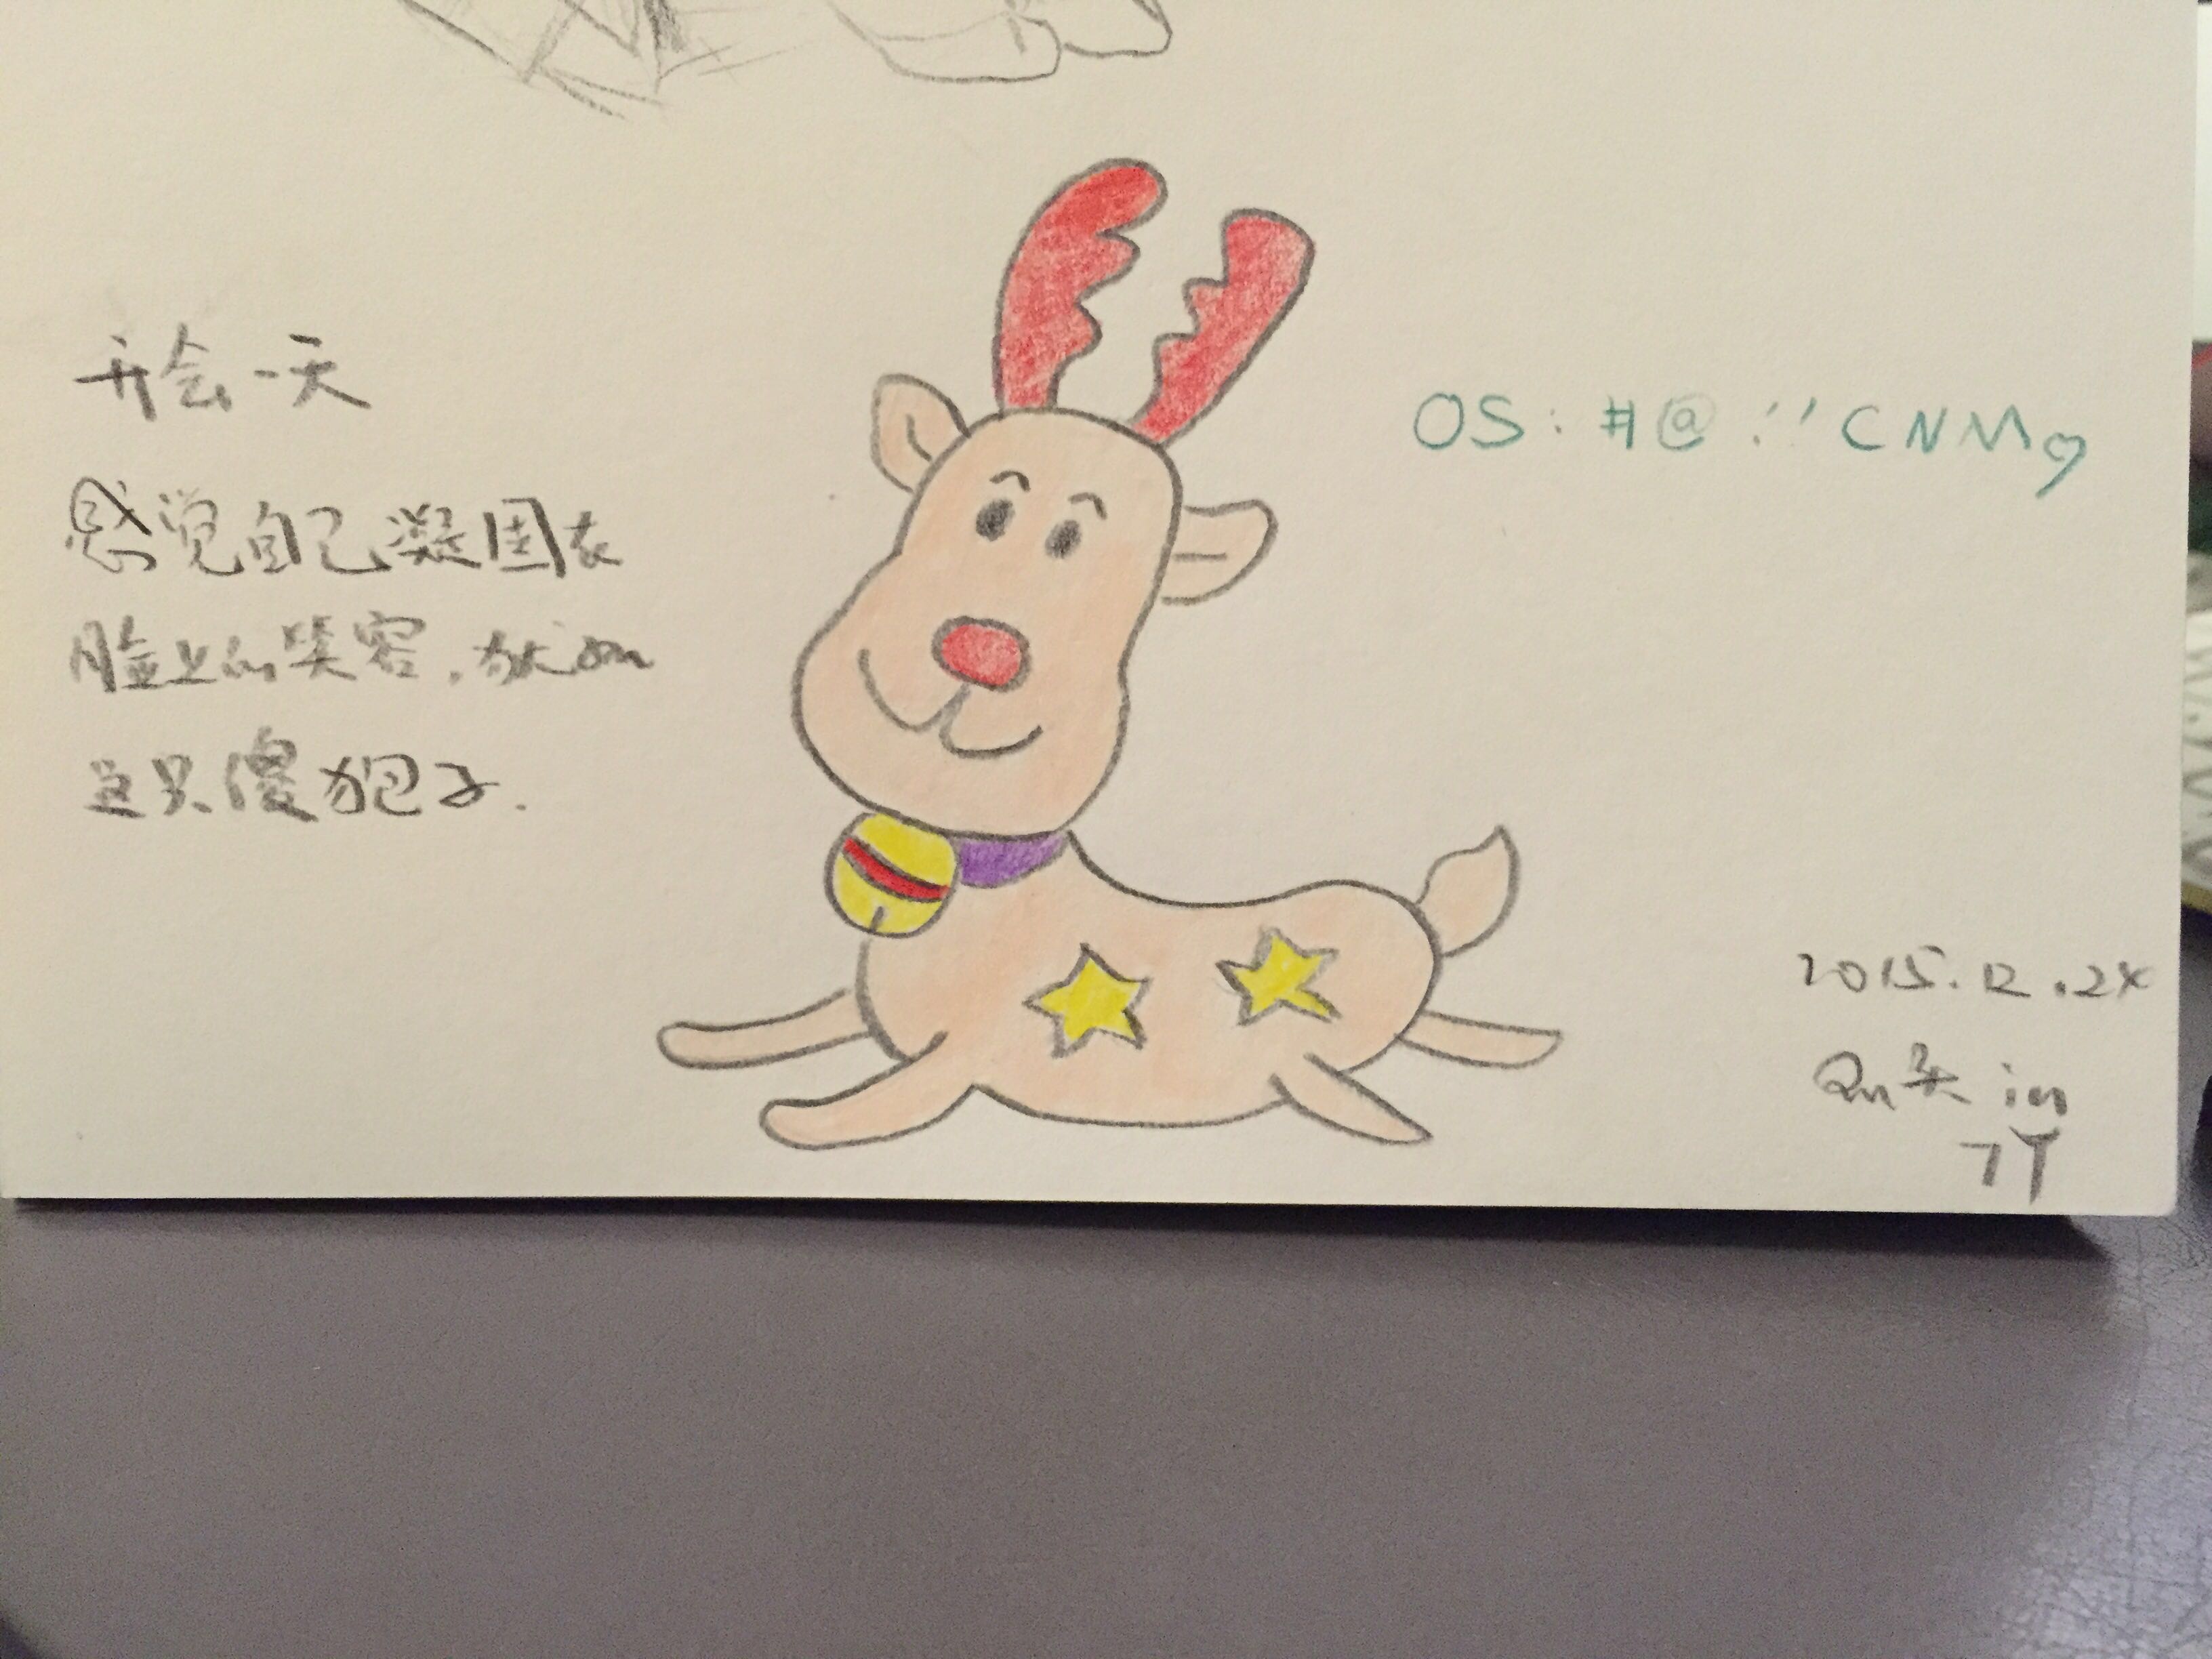 开会一天
感觉自己凝固在
脸上的笑容，就如
这只傻狍子.
OS: #@!'' CNM
2015.12.24
头 in